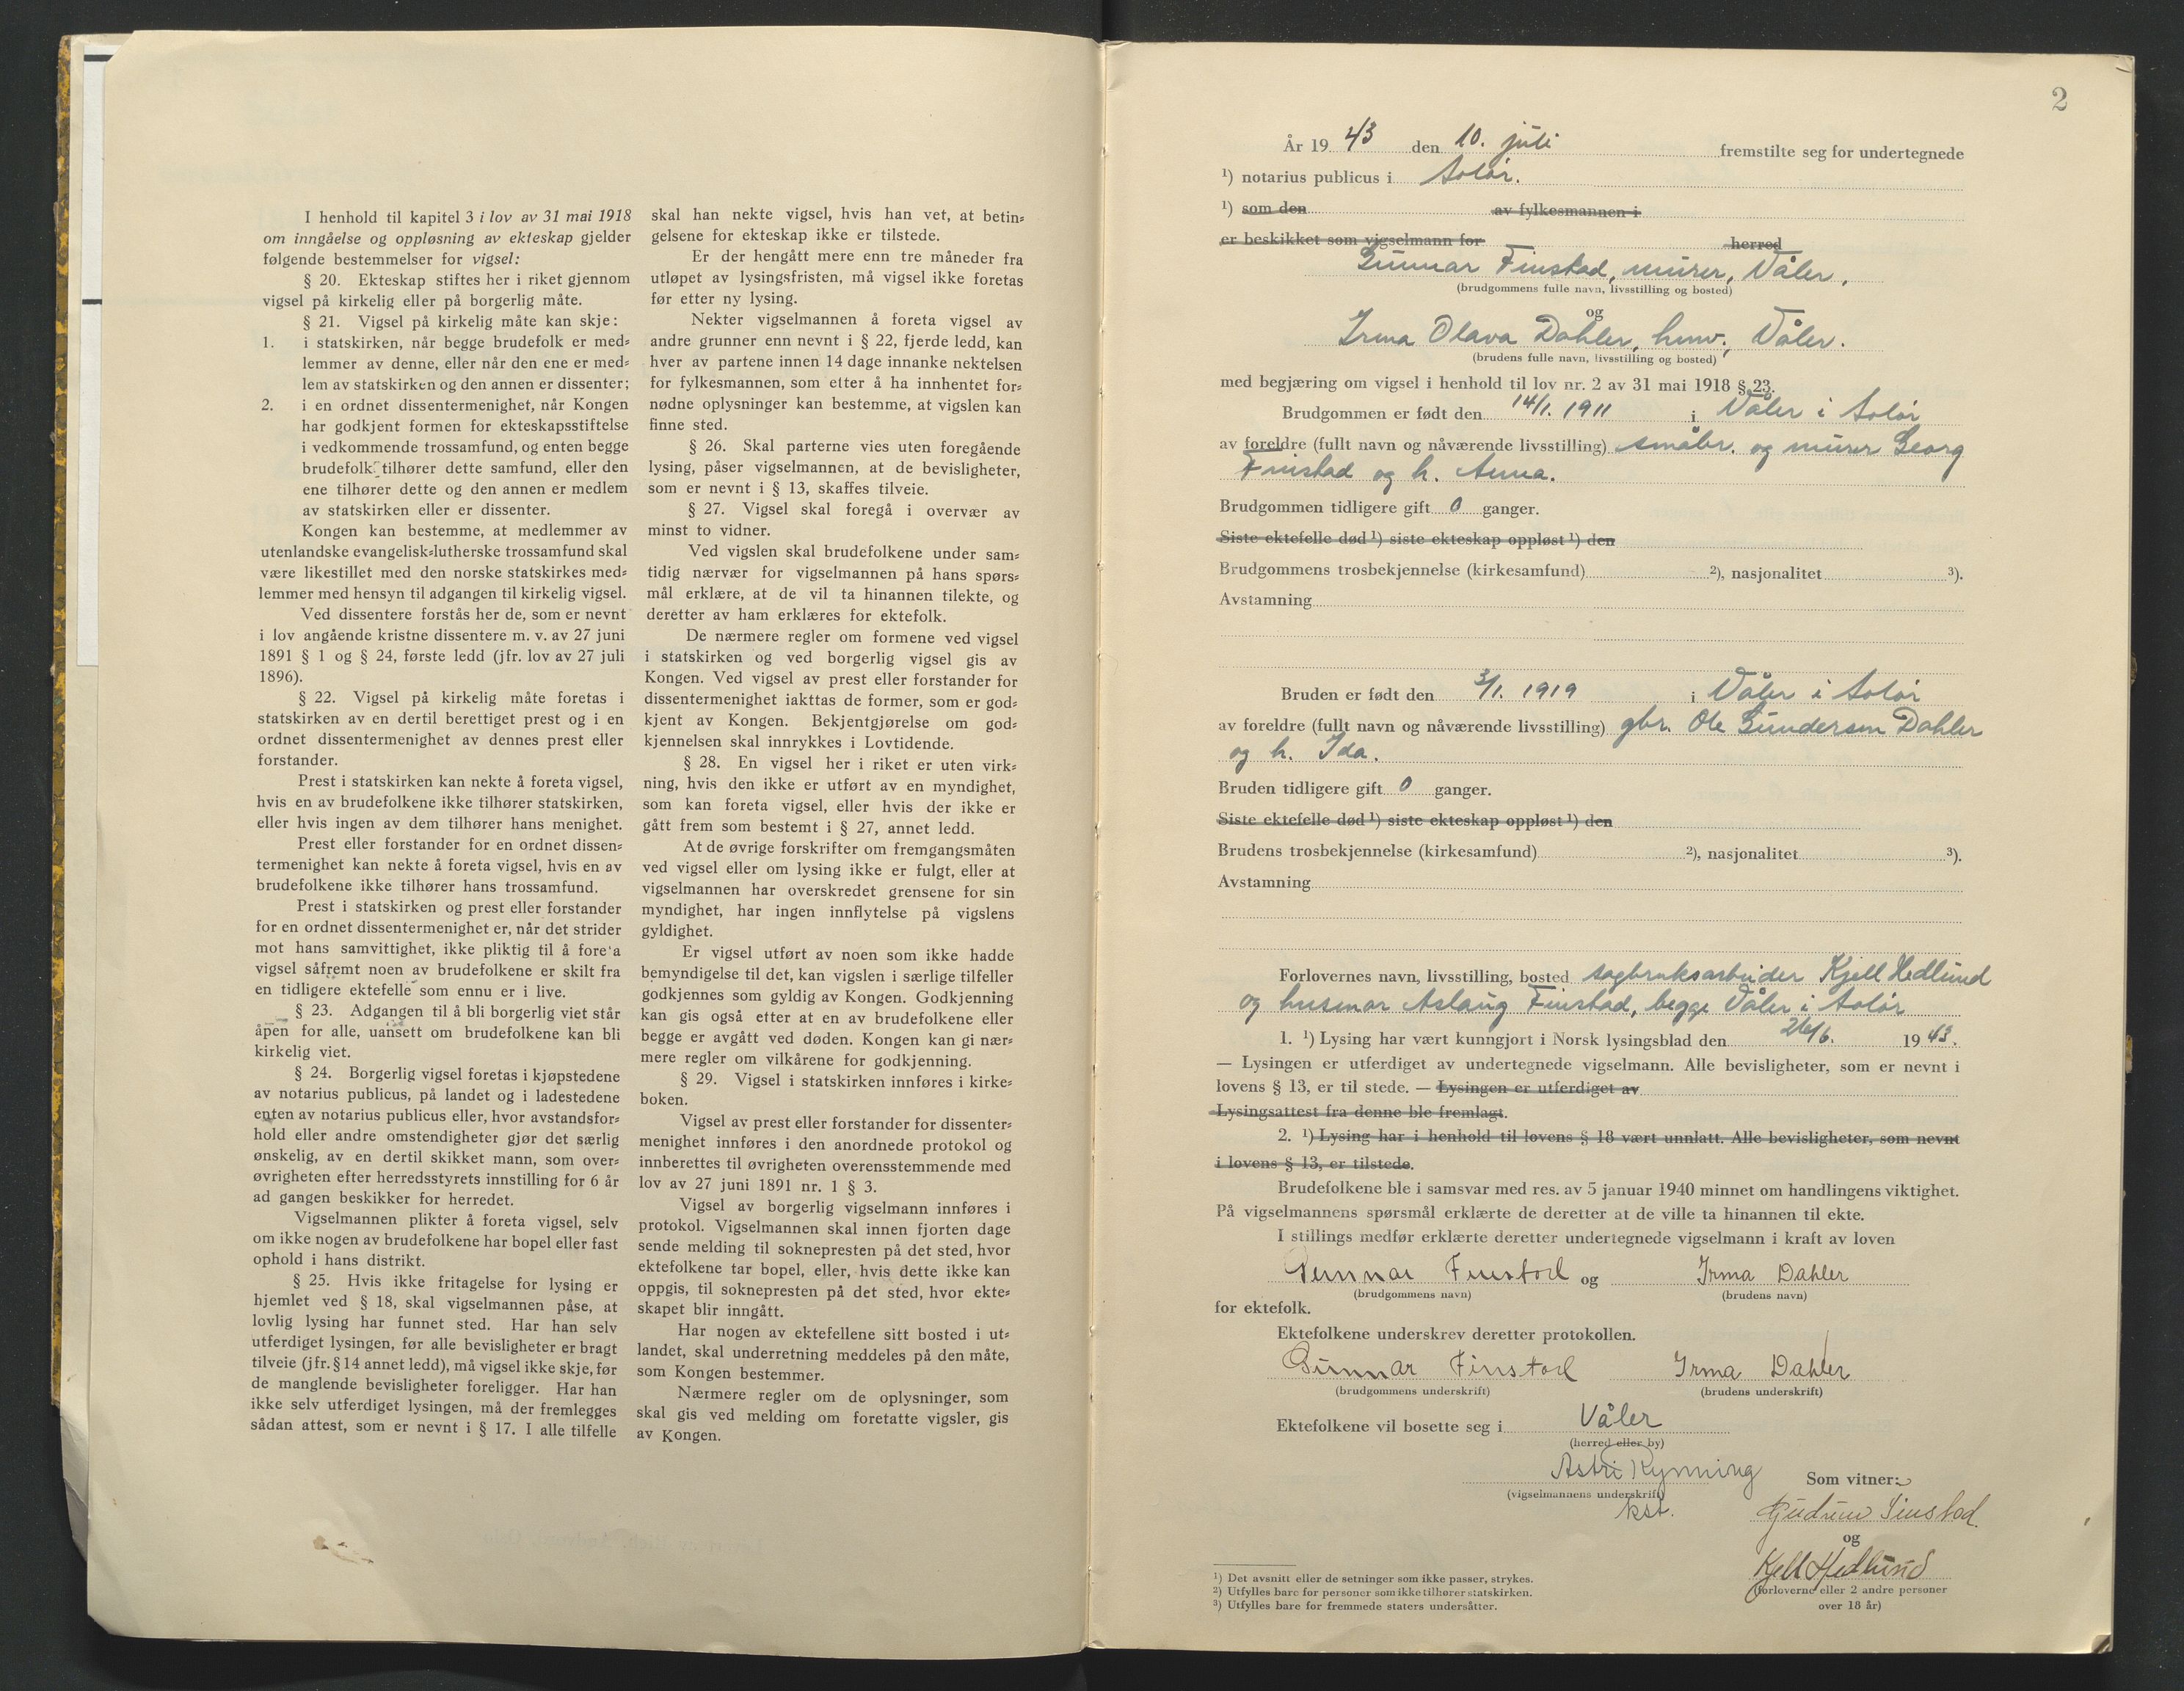 I henhold til kapitel 3 i lov av 31 mai 1918
om inngåelse og oppløsning av ekteskap gjelder
følgende bestemmelser for vigsel:
§ 20. Ekteskap stiftes her i riket gjennom
vigsel på kirkelig eller på borgerlig måte.
§ 21. Vigsel på kirkelig måte kan skje:
1. i statskirken, når begge brudefolk er med=
lemmer av denne, eller når den ene er med=
lem av statskirken og den annen er dissenter;
2. i en ordnet dissentermenighet, når Kongen
har godkjent formen for ekteskapsstiftelse
i vedkommende trossamfund, og enten begge
brudefolk tilhører dette samfund, eller den
ene tilhører dette og den annen er medlem
av statskirken eller er dissenter.
Kongen kan bestemme, at medlemmer av
utenlandske evangelisk=lutherske trossamfund skal
være likestillet med den norske statskirkes med=
lemmer med hensyn til adgangen til kirkelig vigsel.
Ved dissentere forstås her de, som er nevnt
i lov angående kristne dissentere m. v. av 27 juni
1891 § 1 og § 24, første ledd (jfr. lov av 27 juli
1896).
§ 22. Vigsel på kirkelig måte foretas i
statskirken av en dertil berettiget prest og i en
ordnet dissentermenighet av dennes prest eller
forstander.
Prest i statskirken kan nekte å foreta vigsel,
hvis en av brudefolkene ikke tilhører statskirken,
eller hvis ingen av dem tilhører hans menighet.
Prest eller forstander for en ordnet dissen=
termenighet kan nekte å foreta vigsel, hvis en av
brudefolkene ikke tilhører hans trossamfund.
Prest i statskirken og prest eller forstander
for en ordnet dissentermenighet er, når det strider
mot hans samvittighet, ikke pliktig til å fore'a
vigsel såfremt noen av brudefolkene er skilt fra
en tidligere ektefelle som ennu er i live.
§ 23. Adgangen til å bli borgerlig viet står
åpen for alle, uansett om brudefolkene kan bli
kirkelig viet.
§ 24. Borgerlig vigsel foretas i kjøpstedene
av notarius publicus, på landet og i ladestedene
enten av notarius publicus eller, hvor avstandsfor=
hold eller andre omstendigheter gjør det særlig
ønskelig, av en dertil skikket mann, som over=
øvrigheten efter herredsstyrets innstilling for 6 år
ad gangen beskikker for herredet.
Vigselmannen plikter å foreta vigsel, selv
om ikke nogen av brudefolkene har bopel eller fast
ophold i hans distrikt.
§ 25. Hvis ikke fritagelse for lysing er
hjemlet ved § 18, skal vigselmannen påse, at
lovlig lysing har funnet sted. Har han selv
utferdiget lysingen, før alle bevisligheter er bragt
tilveie (jfr. § 14 annet ledd), må vigsel ikke skje, før
de manglende bevisligheter foreligger. Har han
ikke selv utferdiget lysingen, må der fremlegges
sådan attest, som er nevnt i § 17. I alle tilfelle
skal han nekte vigsel, hvis han vet, at betin=
gelsene for ekteskap ikke er tilstede.
Er der hengått mere enn tre måneder fra
utløpet av lysingsfristen, må vigsel ikke foretas
før etter ny lysing.
Nekter vigselmannen å foreta vigsel av
andre grunner enn nevnt i § 22, fjerde ledd, kan
hver av partene innen 14 dage innanke nektelsen
for fylkesmannen, som etter å ha innhentet for=
nødne oplysninger kan bestemme, at vigslen kan
finne sted.
§ 26. Skal parterne vies uten foregående
lysing, påser vigselmannen, at de bevisligheter,
som er nevnt i § 13, skaffes tilveie.
§ 27. Vigsel skal foregå i overvær av
minst to vidner.
Ved vigslen skal brudefolkene under sam=
tidig nærvær for vigselmannen på hans spørs=
mål erklære, at de vil ta hinannen tilekte, og
deretter av ham erklæres for ektefolk.
De nærmere regler om formene ved vigsel
i statskirken og ved borgerlig vigsel gis av
Kongen. Ved vigsel av prest eller forstander for
dissentermenighet iakttas de former, som er god=
kjent av Kongen. Bekjentgjørelse om god=
kjennelsen skal innrykkes i Lovtidende.
§ 28. En vigsel her i riket er uten virk=
ning, hvis den ikke er utført av en myndighet,
som kan foreta vigsel, eller hvis der ikke er
gått frem som bestemt i § 27, annet ledd.
At de øvrige forskrifter om fremgangsmåten
ved vigsel eller om lysing ikke er fulgt, eller at
vigselmannen har overskredet grensene for sin
myndighet, har ingen innflytelse på vigslens
gyldighet.
Er vigsel utført av noen som ikke hadde
bemyndigelse til det, kan vigslen i særlige tilfeller
godkjennes som gyldig av Kongen. Godkjenning
kan gis også etter at en av brudefolkene eller
begge er avgått ved døden. Kongen kan gi nær=
mere regler om vilkårene for godkjenning.
§ 29. Vigsel i statskirken innføres i kirke=
boken.
Vigsel av prest eller forstander for dissenter=
menighet innføres i den anordnede protokol og
innberettes til øvrigheten overensstemmende med
lov av 27 juni 1891 nr. 1 § 3.
Vigsel av borgerlig vigselmann innføres i
protokol. Vigselmannen skal innen fjorten dage
sende melding til soknepresten på det sted, hvor
ektefolkene tar bopel, eller, hvis dette ikke kan
oppgis, til soknepresten på det sted, hvor ekte=
skapet blir inngått.
Har nogen av ektefellene sitt bosted i ut=
landet, skal underretning meddeles på den måte,
som Kongen bestemmer.
Nærmere regler om de oplysninger, som
skal gis ved melding om foretatte vigsler, gis
av Kongen.
2
År 1943 den 10. juli fremstilte seg for undertegnede
1) notarius publicus i Solør.
1) som den av fylkesmannen i
er beskikket som vigselmann for herred
Gunnar Finstad, murer, Våler,
(brudgommens fulle navn, livsstilling og bosted)
og
Irma Olava Dahler, husv., Våler.
(brudens fulle navn, livsstilling og bosted)
med begjæring om vigsel i henhold til lov nr. 2 av 31 mai 1918 § 23.
Brudgommen er født den 14/1. 1911 i Våler i Solør
av foreldre (fullt navn og nåværende livsstilling) småbr. og murer Georg
Finstad og h. Anna.
Brudgommen tidligere gift 0 ganger.
Siste ektefelle død 1) siste ekteskap oppløst 1) den
Brudgommens trosbekjennelse (kirkesamfund) 2), nasjonalitet 3).
Avstamning
Bruden er født den 3/1. 1919 i Våler i Solør
av foreldre (fullt navn og nåværende livsstilling) gbr. Ole Gundersen Dahler
og h. Ida.
Bruden tidligere gift 0 ganger.
Siste ektefelle død 1) siste ekteskap oppløst 1) den
Brudens trosbekjennelse (kirkesamfund) 2), nasjonalitet 3).
Avstamning
Forlovernes navn, livsstilling, bosted sagbruksarbeider Kjell Hedlund
og husmor Aslaug Finstad, begge Våler i Solør
1. 1) Lysing har vært kunngjort i Norsk lysingsblad den 26/6. 1943.
— Lysingen er utferdiget av undertegnede vigselmann. Alle bevisligheter, som er nevnt i
lovens § 13, er til stede. — Lysingen er utferdiget av
Lysingsattest fra denne ble fremlagt.
2. 1) Lysing har i henhold til lovens § 18 vært unnlatt. Alle bevisligheter, som nevnt
i lovens § 13, er tilstede.
Brudefolkene ble i samsvar med res. av 5 januar 1940 minnet om handlingens viktighet.
På vigselmannens spørsmål erklærte de deretter at de ville ta hinannen til ekte.
I stillings medfør erklærte deretter undertegnede vigselmann i kraft av loven
Gunnar Finstad og Irma Dahler
(brudgommens navn) (brudens navn)
for ektefolk.
Ektefolkene underskrev deretter protokollen.
Gunnar Finstad Irma Dahler
(brudgommens underskrift) (brudens underskrift)
Ektefolkene vil bosette seg i Våler
(herred eller by)
Astri Rynning Som vitner:
(vigselmannens underskrift)
kst. Gudrun Finstad
og
Kjell Hedlund
(forloverne eller 2 andre personer
over 18 år)
1) Det avsnitt eller de setninger som ikke passer, strykes.
2) Utfylles bare for personer som ikke tilhører statskirken.
3) Utfylles bare for fremmede staters undersåtter.